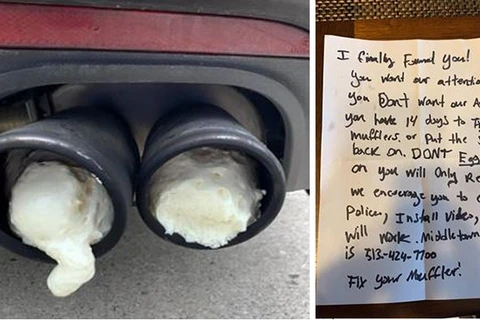 I finally Found You!
you want our attentio
you Don't want our A
you have 14 days to
mufflers. or Put the S
back on. DONT Egg
on you will Only Re
we encourage you to c
Police, Install Video,
will work. Middletown
is 313-424-7700
Fix your Muffler!